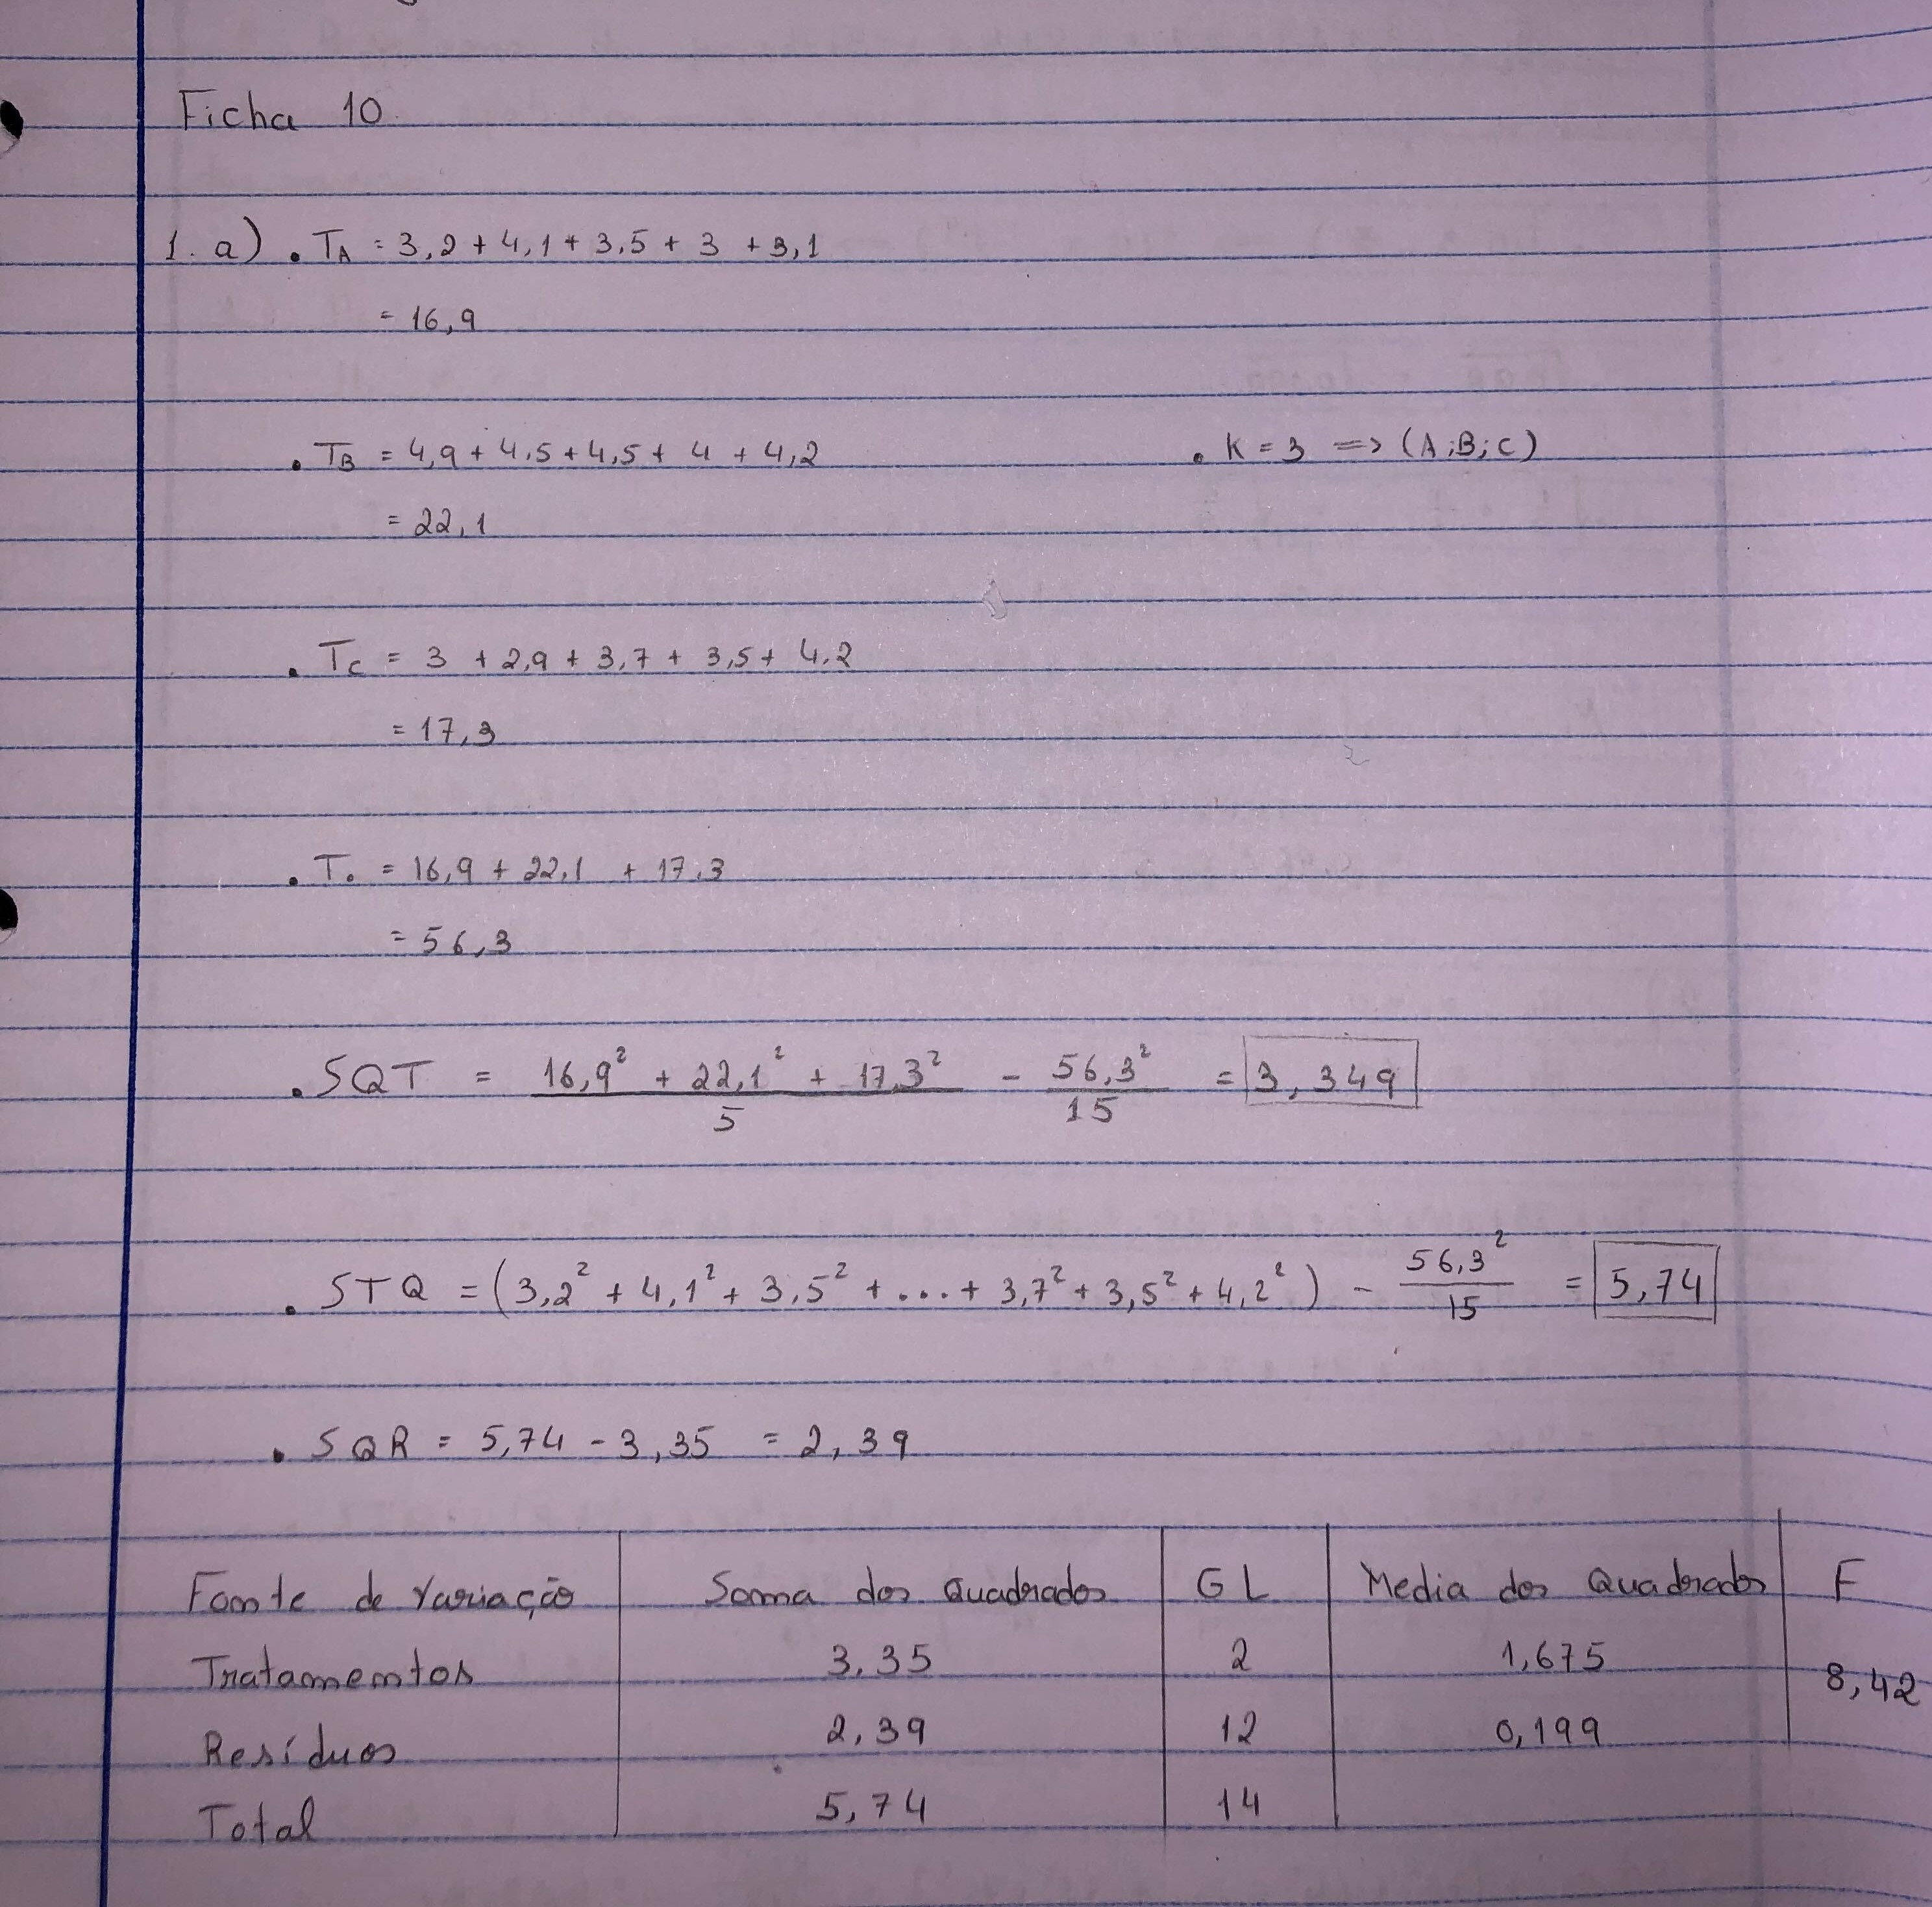 Ficha 10
1. a) • TA = 3,2 + 4,1 + 3,5 + 3 + 3,1
= 16,9
• TB = 4,9 + 4,5 + 4,5 + 4 + 4,2
• K = 3 => (A;B;C)
= 22,1
• TC = 3 + 2,9 + 3,7 + 3,5 + 4,2
= 17,3
• T. = 16,9 + 22,1 + 17,3
= 56,3
• SQT = (16,9² + 22,1² + 17,3²)/5 - 56,3²/15 = 3,349
• STQ = (3,2² + 4,1² + 3,5² + ... + 3,7² + 3,5² + 4,2²) - 56,3²/15 = 5,74
• SQR = 5,74 - 3,35 = 2,39
Fonte de Variação Soma dos Quadrados GL Media dos Quadrados F
Tratamentos 3,35 2 1,675 8,42
Resíduos 2,39 12 0,199
Total 5,74 14